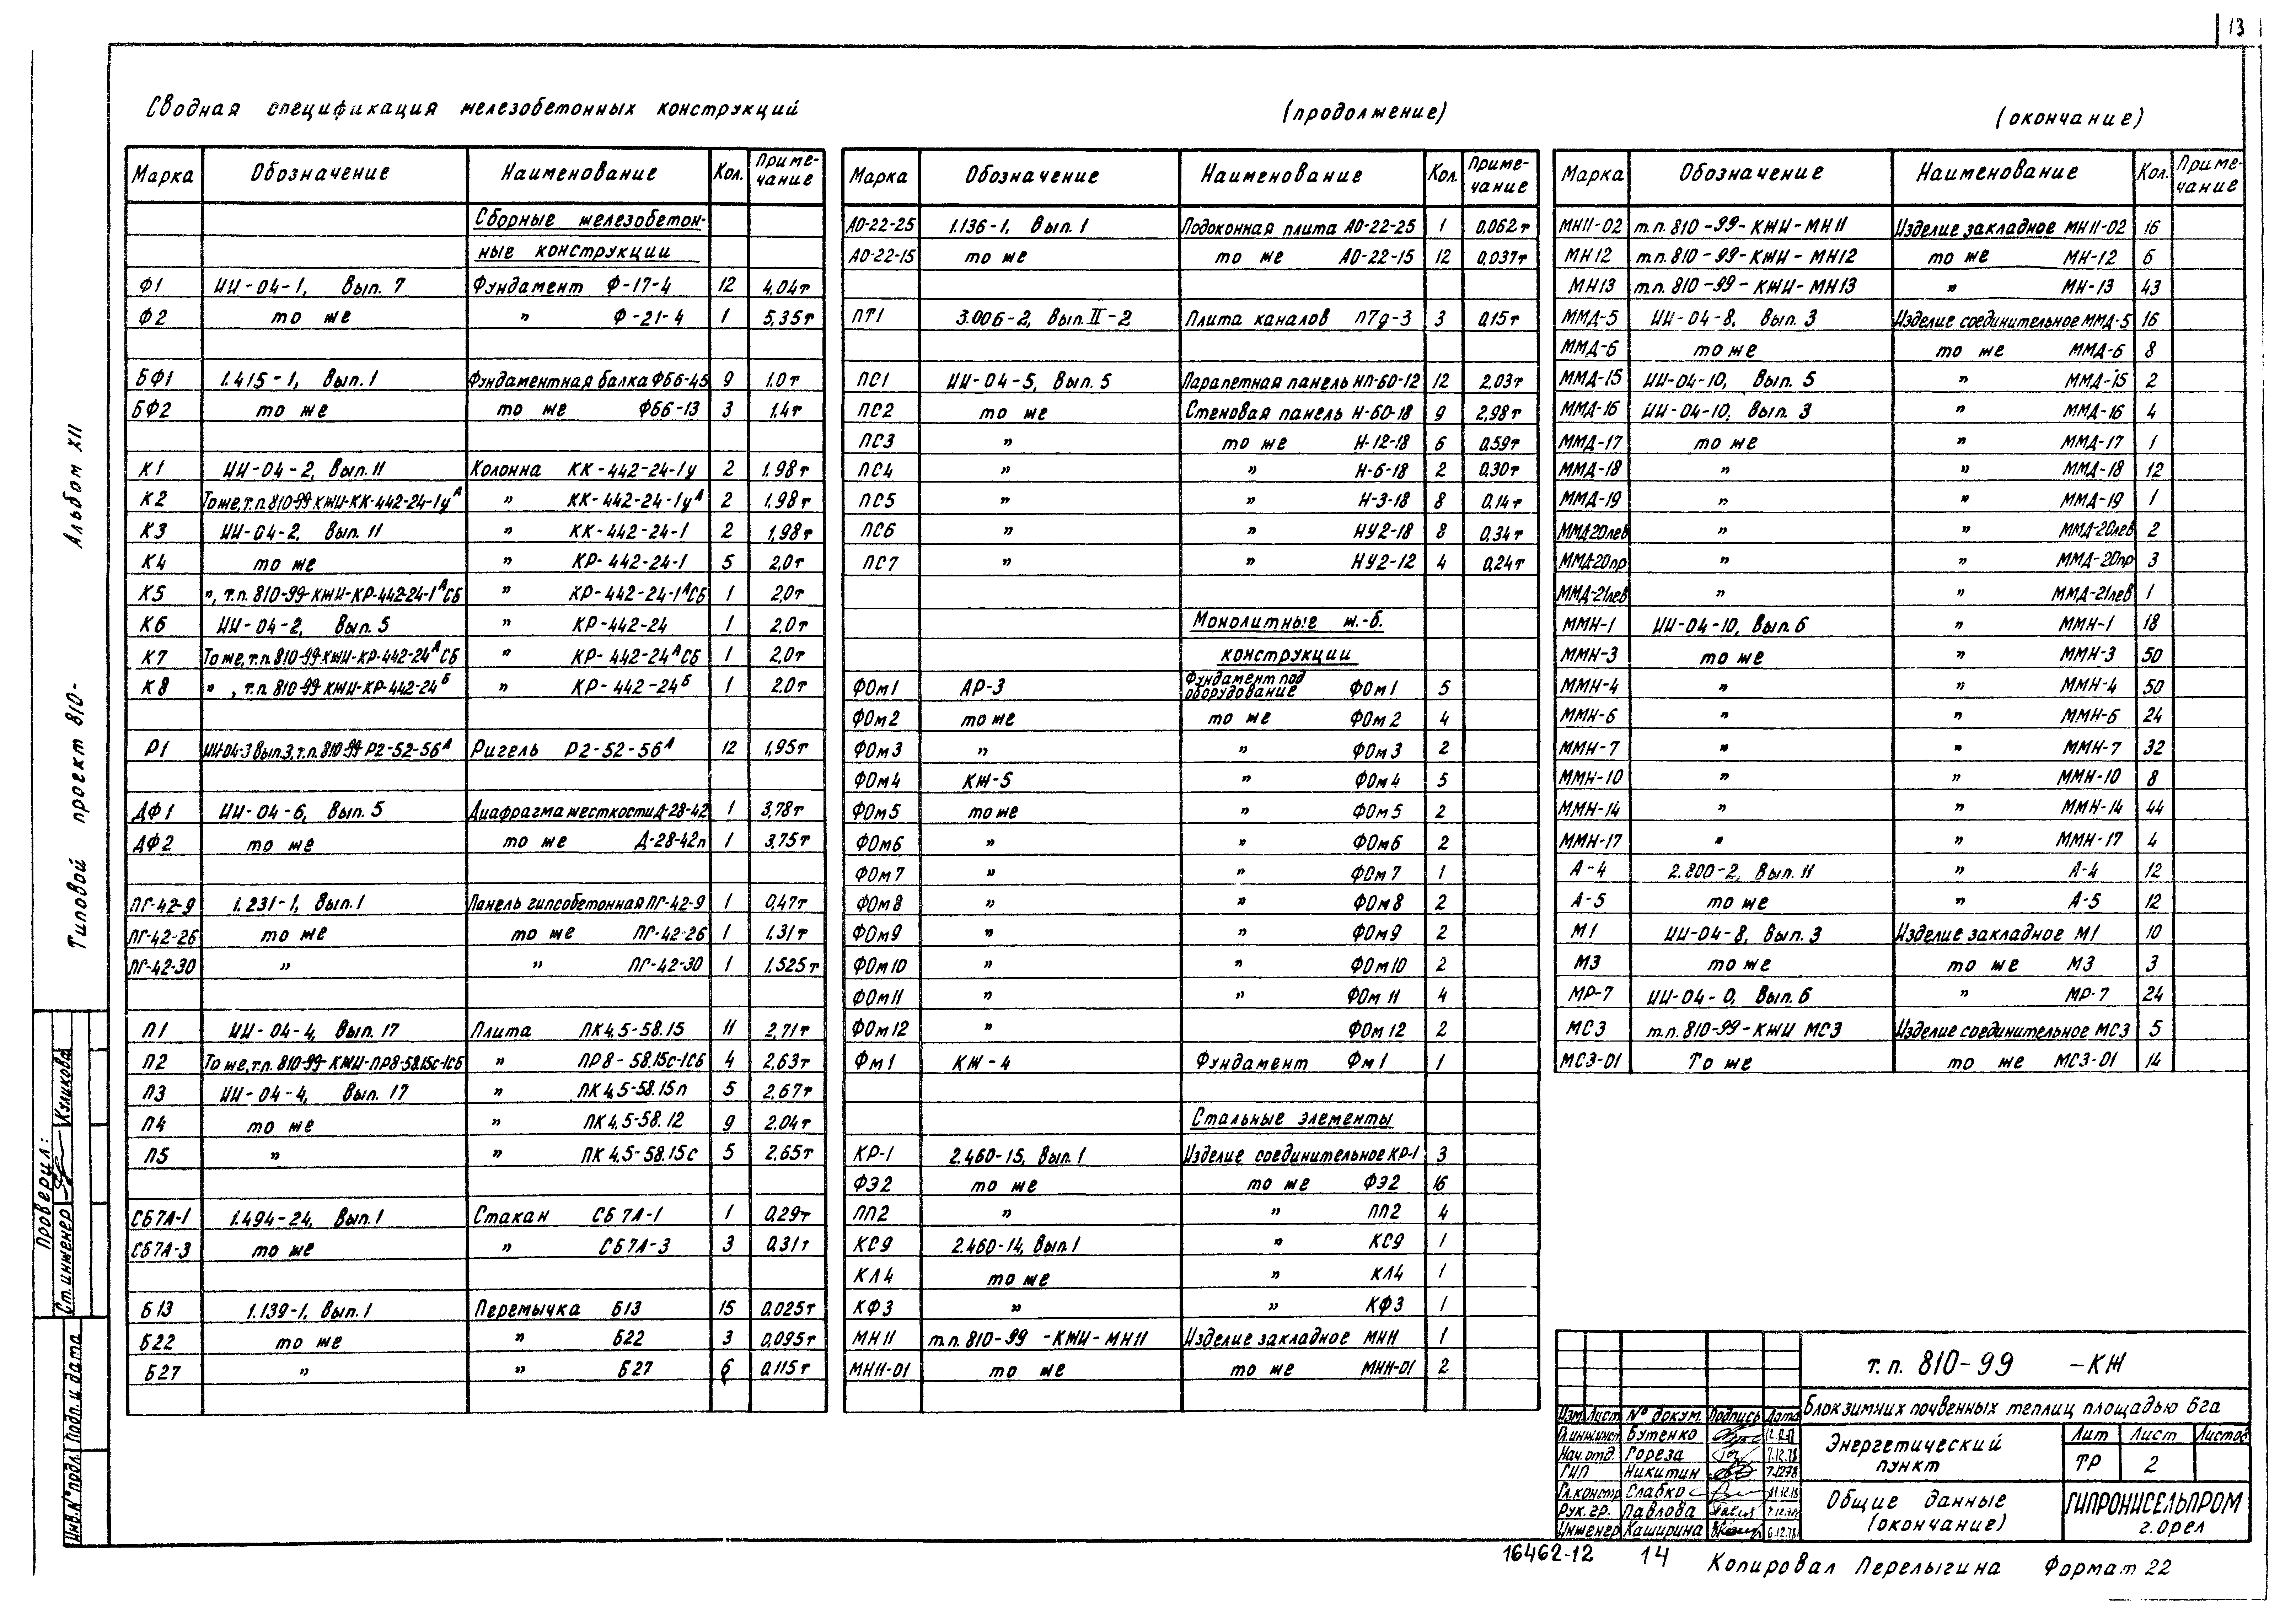 13
Сводная спецификация железобетонных конструкций
(продолжение)
(окончание)
Марка Обозначение Наименование Кол. Примечание
Сборные железобетон-
ные конструкции
Ф1 ИИ-04-1, Вып. 7 Фундамент Ф-17-4 12 4,04т
Ф2 то же " Ф-21-4 1 5,35т
БФ1 1.415-1, Вып. 1 Фундаментная балка ФБ6-45 9 1.0т
БФ2 то же то же ФБ6-13 3 1.4т
К1 ИИ-04-2, Вып. 11 Колонна КК-442-24-1у 2 1.98т
К2 То же, т.п. 810-99 КЖИ-КК-442-24-1уА " КК-442-24-1уА 2 1,98т
К3 ИИ-04-2, Вып. 11 " КК-442-24-1 2 1,98т
К4 то же " КР-442-24-1 5 2,0т
К5 ", т.п. 810-99-КЖИ-КР-442-24-1АСБ " КР-442-24-1АСБ 1 2.0т
К6 ИИ-04-2, Вып. 5 " КР-442-24 1 2.0т
К7 То же, т.п. 810-99 КЖИ-КР-442-24АСБ " КР-442-24АСБ 1 2,0т
К8 ", т.п. 810-99 КЖИ-КР-442-24Б " КР-442-24Б 1 2.0т
Р1 ИИ-04-3 Вып.3, т.п. 810-99 Р2-52-56А Ригель Р2-52-56А 12 1,95т
ДФ1 ИИ-04-6, Вып. 5 Диафрагма жесткости Д-28-42 1 3,78т
ДФ2 то же то же Д-28-42п 1 3,75т
ПГ-42-9 1.231-1, Вып. 1 Панель гипсобетонная ПГ-42-9 1 0,47т
ПГ-42-26 то же то же ПГ-42-26 1 1.31т
ПГ-42-30 " " ПГ-42-30 1 1,525т
П1 ИИ-04-4, Вып. 17 Плита ПК4,5-58.15 11 2,71т
П2 То же, т.п. 810-99-КЖИ-ПР8-58.15с-1СБ " ПР8-58.15с-1СБ 4 2,63т
П3 ИИ-04-4, Вып. 17 " ПК4,5-58.15п 5 2,67т
П4 то же " ПК4,5-58.12 9 2.04т
П5 " " ПК4,5-58.15с 5 2,65т
СБ7А-1 1.494-24, Вып. 1 Стакан СБ7А-1 1 0,29т
СБ7А-3 то же " СБ7А-3 3 0,31т
Б13 1.139-1, Вып. 1 Перемычка Б13 15 0,025т
Б22 то же " Б22 3 0,095т
Б27 " " Б27 6 0,115т
Марка Обозначение Наименование Кол. Примечание
АО-22-25 1.136-1, Вып. 1 Подоконная плита АО-22-25 1 0,062т
АО-22-15 то же то же АО-22-15 12 0,037т
ПТ1 3.006-2, Вып. II-2 Плита каналов П7д-3 3 0,15т
ПС1 ИИ-04-5, Вып. 5 Парапетная панель НП-60-12 12 2,03т
ПС2 то же Стеновая панель Н-60-18 9 2,98т
ПС3 " то же Н-12-18 6 0,59т
ПС4 " " Н-6-18 2 0,30т
ПС5 " " Н-3-18 8 0,14т
ПС6 " " НУ2-18 8 0,34т
ПС7 " " НУ2-12 4 0,24т
Монолитные ж.-б.
конструкции
ФОм1 АР-3 Фундамент под оборудование ФОм1 5
ФОм2 то же то же ФОм2 4
ФОм3 " " ФОм3 2
ФОм4 КЖ-5 " ФОм4 5
ФОм5 то же " ФОм5 2
ФОм6 " " ФОм6 2
ФОм7 " " ФОм7 1
ФОм8 " " ФОм8 2
ФОм9 " " ФОм9 2
ФОм10 " " ФОм10 2
ФОм11 " " ФОм11 4
ФОм12 " ФОм12 2
Фм1 КЖ-4 Фундамент Фм1 1
Стальные элементы
КР-1 2.460-15, Вып. 1 Изделие соединительное КР-1 3
ФЭ2 то же то же ФЭ2 16
ПП2 " " ПП2 4
КС9 2.460-14, Вып. 1 " КС9 1
КЛ4 то же " КЛ4 1
КФ3 " " КФ3 1
МН11 т.п. 810-99 -КЖИ-МН11 Изделие закладное МН11 1
МН11-01 то же то же МН11-01 2
Марка Обозначение Наименование Кол. Примечание
МН11-02 т.п. 810-99-КЖИ-МН11 Изделие закладное МН11-02 16
МН12 т.п. 810-99-КЖИ-МН12 то же МН-12 6
МН13 т.п. 810-99-КЖИ-МН13 " МН-13 43
ММД-5 ИИ-04-8, Вып. 3 Изделие соединительное ММД-5 16
ММД-6 то же то же ММД-6 8
ММД-15 ИИ-04-10, Вып. 5 " ММД-15 2
ММД-16 ИИ-04-10, Вып. 3 " ММД-16 4
ММД-17 то же " ММД-17 1
ММД-18 " " ММД-18 12
ММД-19 " " ММД-19 1
ММД20лев " " ММД-20лев 2
ММД-20пр " " ММД-20пр 3
ММД-21лев " " ММД-21лев 1
ММН-1 ИИ-04-10, Вып. 6 " ММН-1 18
ММН-3 то же " ММН-3 50
ММН-4 " " ММН-4 50
ММН-6 " " ММН-6 24
ММН-7 " " ММН-7 32
ММН-10 " " ММН-10 8
ММН-14 " " ММН-14 44
ММН-17 " " ММН-17 4
А-4 2.800-2, Вып. 11 " А-4 12
А-5 то же " А-5 12
М1 ИИ-04-8, Вып. 3 Изделие закладное М1 10
М3 то же то же М3 3
МР-7 ИИ-04-0, Вып. 6 " МР-7 24
МС3 т.п. 810-99-КЖИ МС3 Изделие соединительное МС3 5
МС3-01 То же то же МС3-01 14
Альбом XII
Типовой проект 810-
Проверил:
Ст. инженер Куликова
Инв. № подл. Подп. и дата
т. п. 810-99 -КЖ
Блок зимних почвенных теплиц площадью 6га
Изм. Лист № докум. Подпись Дата
Гл.инж.инст. Бутенко
Нач. отд. Гореза 7.12.78
ГИП Никитин 7.12.78
Гл.констр. Слабко
Рук. гр. Павлова
Инженер Каширина 6.12.78
Энергетический
пункт
Лит Лист Листов
ТР 2
Общие данные
(окончание)
ГИПРОНИСЕЛЬПРОМ
г. Орел
16462-12 14
Копировал Перелыгина Формат 22